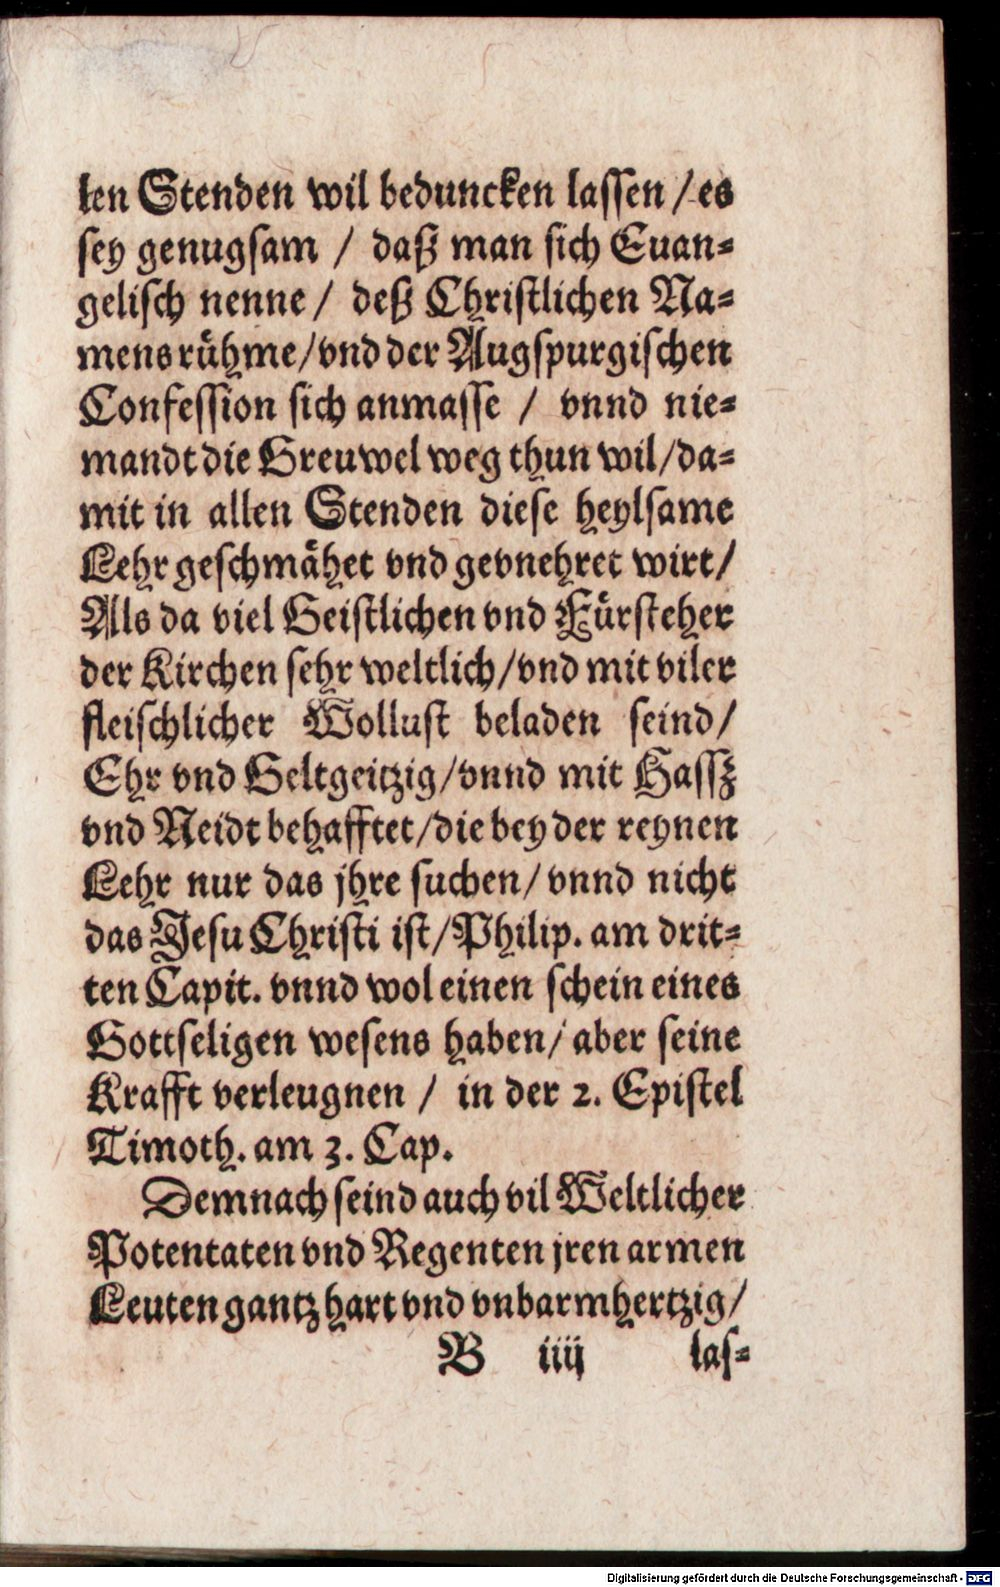 len Stenden wil beduncken lassen / es
sey genugsam / daß man sich Euan-
gelisch nenne / deß Christlichen Na-
mens rühme / vnd der Augspurgischen
Confession sich anmasse / vnnd nie-
mandt die Greuwel weg thun wil / da-
mit in allen Stenden diese heylsame
Lehr geschmähet vnd gevnehret wirt /
Als da viel Geistlichen vnd Fürsteher
der Kirchen sehr weltlich / vnd mit viler
fleischlicher Wollust beladen seind /
Ehr vnd Geltgeitzig / vnnd mit Hassz
vnd Neidt behafftet / die bey der reynen
Lehr nur das jhre suchen / vnnd nicht
das Jesu Christi ist / Philip. am drit-
ten Capit. vnnd wol einen schein eines
Gottseligen wesens haben / aber seine
Krafft verleugnen / in der 2. Epistel
Timoth. am 3. Cap.
Demnach seind auch vil Weltlicher
Potentaten vnd Regenten jren armen
Leuten gantz hart vnd vnbarmhertzig /
B iiij las-
Digitalisierung gefördert durch die Deutsche Forschungsgemeinschaft - DFG